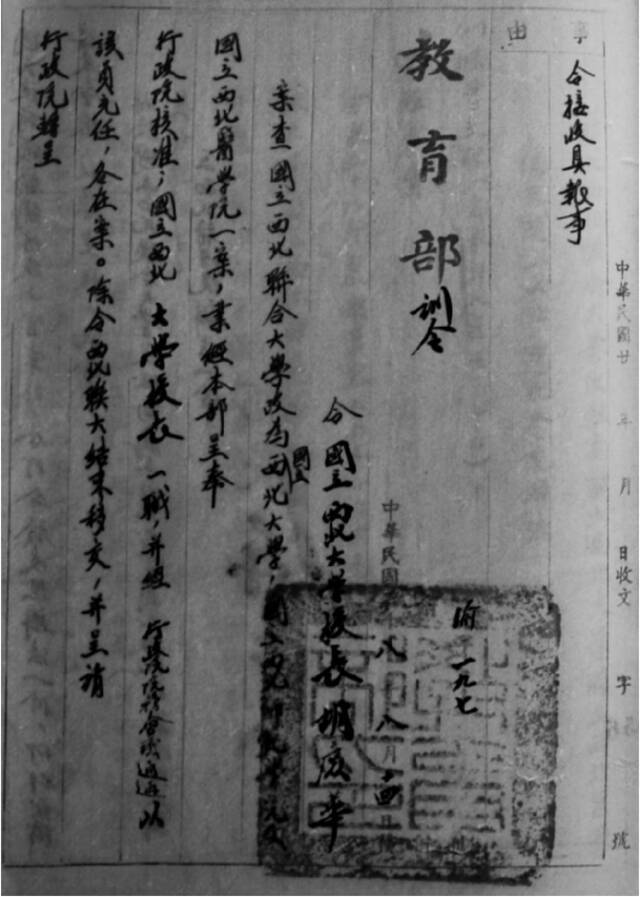 事由
令接收具報事
中華民國廿 年 月 日收文 字 號
教育部訓令
中華民國 八年八月 日
一九七
令國立西北大學校長胡庶華
案查國立西北聯合大學改為國立西北大學,國立西北師範學院及
國立西北醫學院一案,業經本部呈奉
行政院核准,國立西北大學校長一職,并經 行政院院務會議通過以
該員充任,各在案。除令西北聯大結束移交,并呈請
行政院轉呈